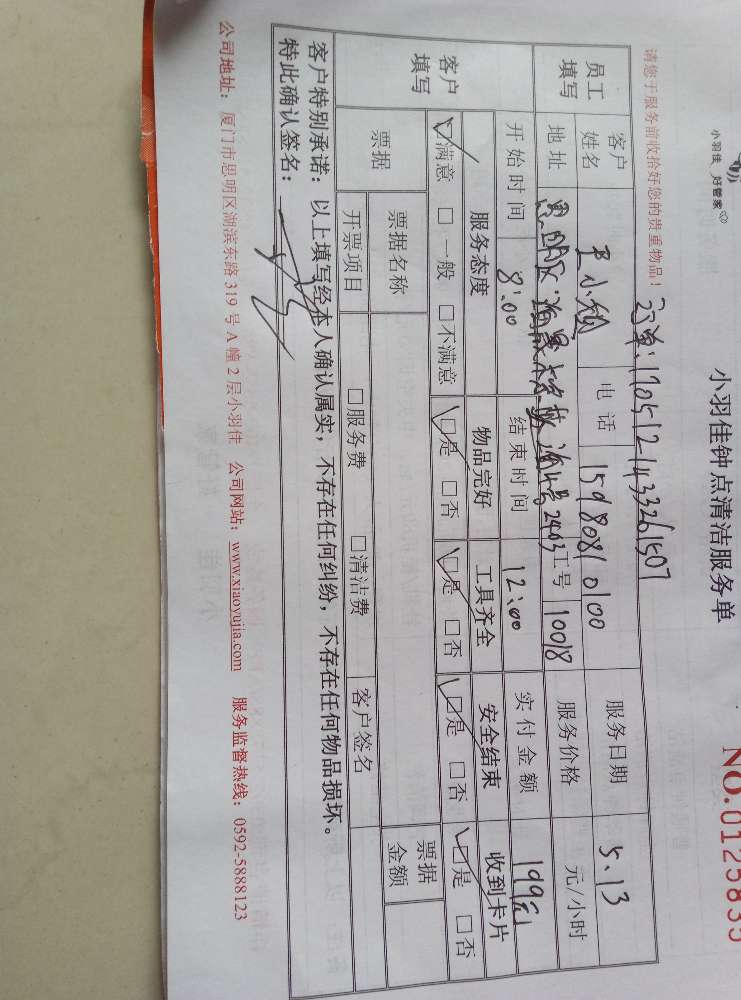 小羽佳 好管家
小羽佳钟点清洁服务单
NO.0125835
请您于服务前收拾好您的贵重物品!
订单:1705121433261507
员工填写 客户姓名 王小 电话 15980810100 服务日期 5.13
地址 思明区 2403 工号 10018 服务价格 元/小时
开始时间 8:00 结束时间 12:00 实付金额 199元
客户填写 服务态度 物品完好 工具齐全 安全结束 收到卡片
☑满意 □一般 □不满意 ☑是 □否 ☑是 □否 ☑是 □否 ☑是 □否
票据 票据名称 票据金额
开票项目 □服务费 □清洁费 客户签名
客户特别承诺:以上填写经本人确认属实,不存在任何纠纷,不存在任何物品损坏。
特此确认签名:
公司地址:厦门市思明区湖滨东路319号A幢2层小羽佳 公司网站:www.xiaoyujia.com 服务监督热线:0592-5888123